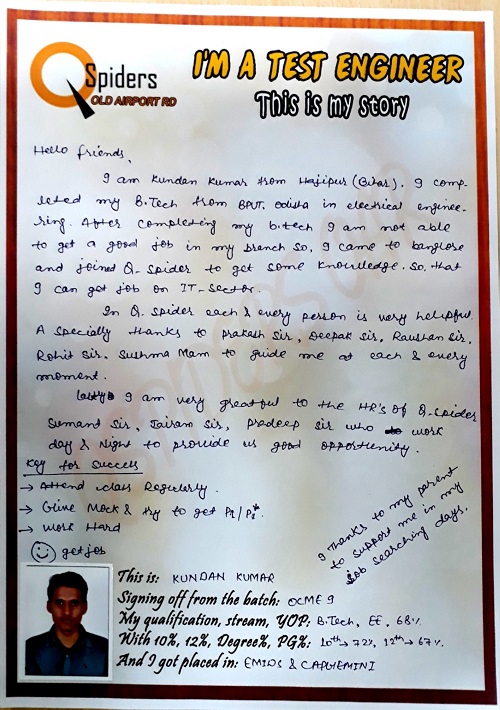 Q Spiders
OLD AIRPORT RD
I'M A TEST ENGINEER
This is my story
Hello friends,
I am Kundan Kumar from Hajipur (Bihar). I comp-
leted my B.Tech from BPUT, Odisha in electrical enginee-
ring. After completing my b.tech I am not able
to get a good job in my branch so, I came to banglore
and joined Q-spider to get some knowledge. So, that
I can get job on IT-sector.
In Q. spider each & every person is very helpful.
A specially thanks to Prakash sir, Deepak sir, Raushan sir,
Rohit sir. Sushma Mam to guide me at each & every
moment.
lastly I am very greatful to the HR's of Q-spider
Sumant sir, Jairam sir, Pradeep sir who work
day & Night to provide us good opportunity.
Key for Success
→ Attend class Regularly.
→ Give Mock & try to get P1/P1*.
→ Work Hard
get job
I Thanks to my parent
to support me in my
job searching days.
This is: KUNDAN KUMAR
Signing off from the batch: OCME 9
My qualification, stream, YOP: B.Tech, EE, 68%
With 10%, 12%, Degree%, PG%: 10th → 72%, 12th → 67%
And I got placed in: EMIDS & CAPGEMINI